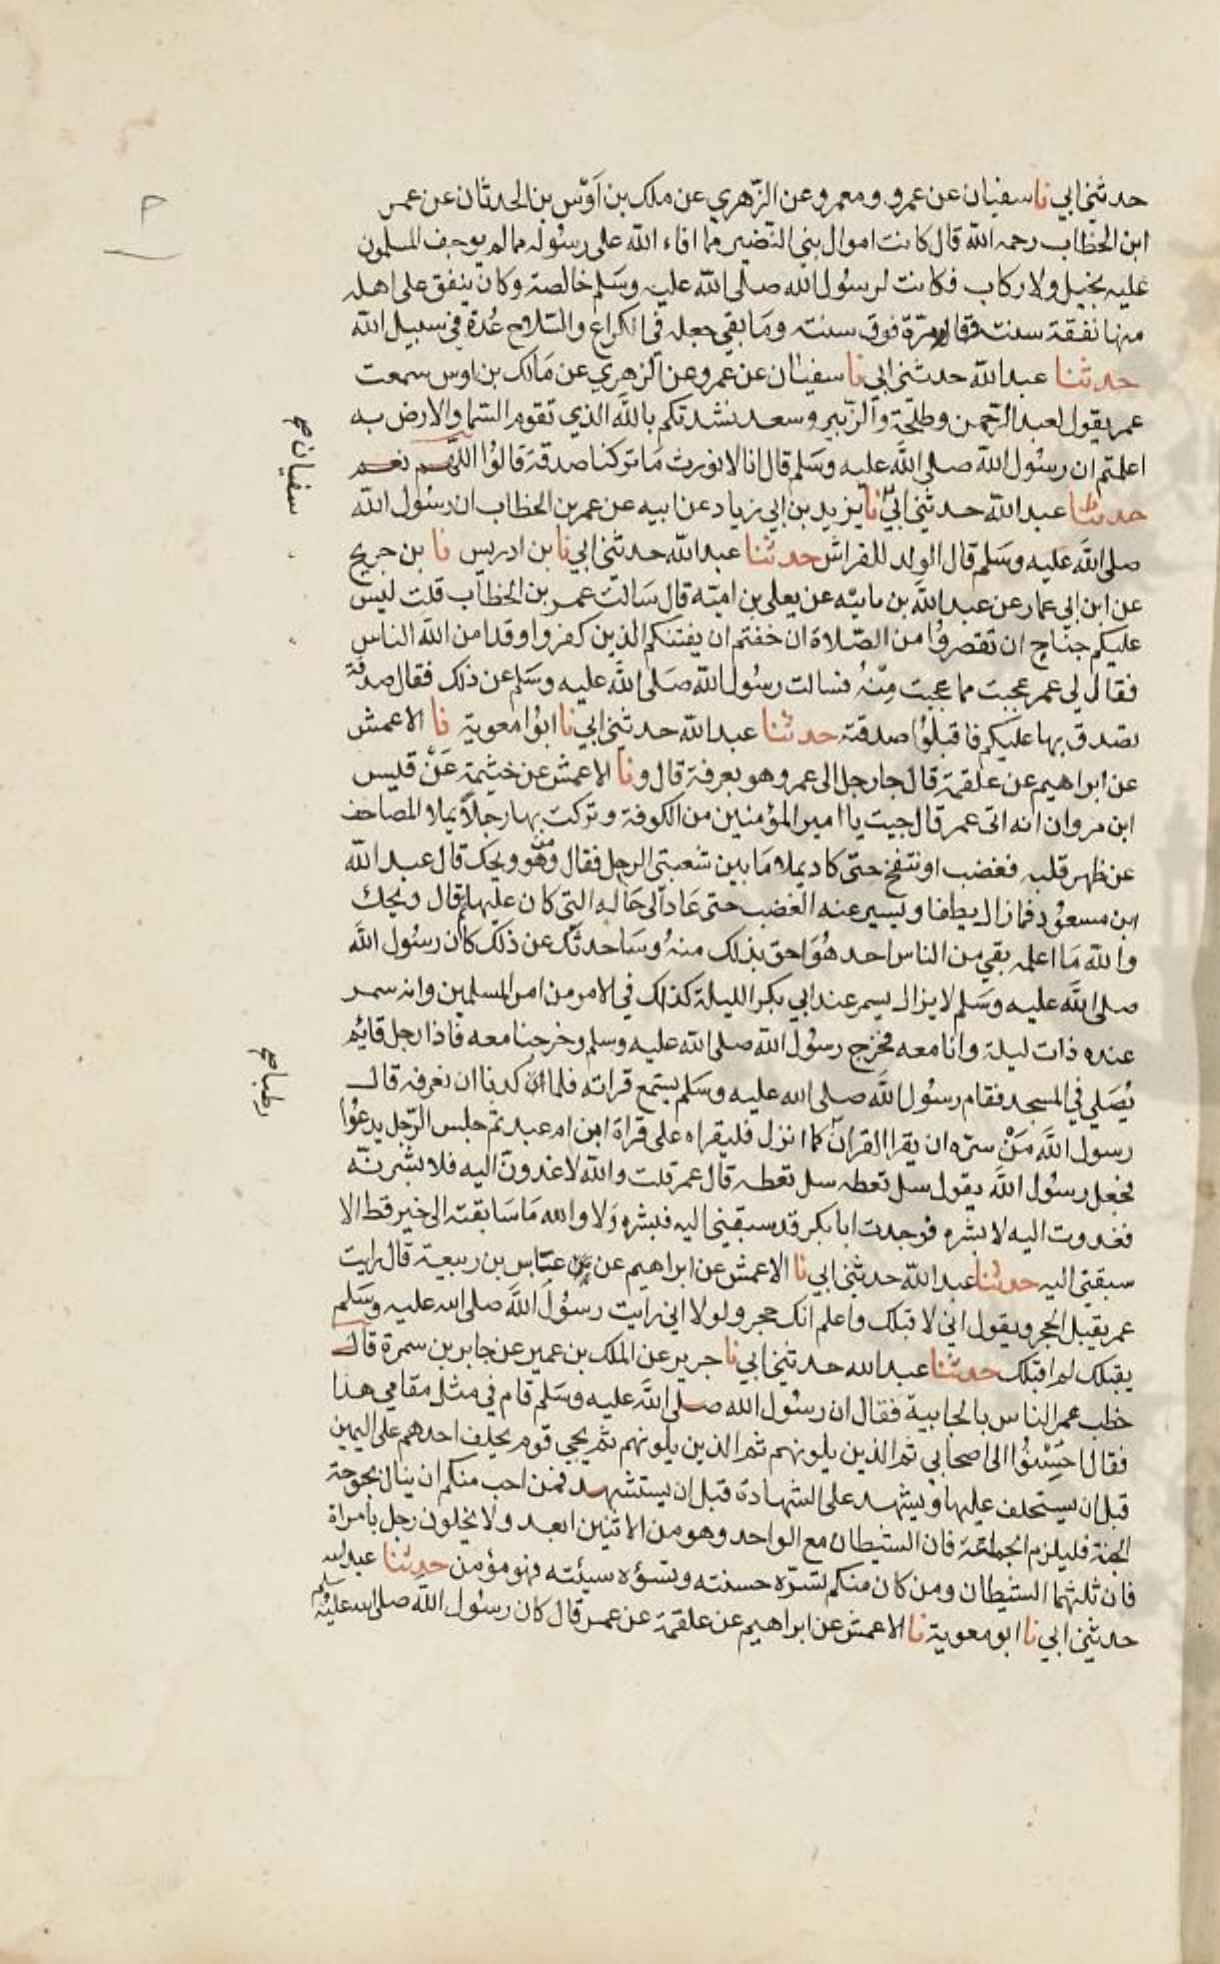 حدثني ابي نا سفيان عن عمرو ومعمرو عن الزّهري عن ملك بن اَوْس بن الحدثان عن عمر
ابن الخطاب رحمه الله قال كانت اموال بني النّضير مما افاء الله على رسُوله مما لم يوجف المسلمون
عليه بخيل ولا ركاب فكانت لرسُول الله صلى الله عليه وسَلم خالصة وكان ينفق على اهله
منها نفقة سنته وقال مرّة قوت سنته وما بقي جعله في الكراع والسّلاح عُدّة في سبيل الله
حدثنا عبد الله حدثني ابي نا سفيان عن عمرو عن الزهري عن مَالك بن اوس سمعت
عمر يقول لعبد الرّحمن وطلحة والزّبير وسعد نشدتكم باللَّه الذي تقوم السّما والارض به
اعلمتم ان رسُول الله صلى اللَّه عليه وسَلم قال انا لا نورث مَا تركنا صدقة قالوُا اللّهم نعم
حدثنا عبد الله حدثني ابي نا يزيد بن ابي زياد عن ابيه عن عمر بن الخطاب ان رسُول الله
صلى الله عَليه وسَلم قال الولد للفراش حدثنا عبد الله حدثني ابي نا بن ادريس نا بن جريج
عن ابن ابي عمار عن عبد اللَّه بن بابيه عن يعلى بن اميّه قال سَالت عمر بن الخطاب قلت ليس
عليكم جناح ان تقصروُا من الصّلاة ان خفتم ان يفتنكم الذين كفروا وقد امن الله الناس
فقال لي عمر عجبت مما عجبت مِنْهُ فسالت رسُول الله صَلى اللَّه عليه وسَلم عن ذلك فقال صدقة
تصدق بها عليكم فاقبلوُا صدقته حدثنا عبد الله حدثني ابي نا ابوُا معوية نا الاعمش
عن ابراهيم عن علقمة قال جا رجل الى عمر وهو بعرفة قال ونا الاعمش عن خيثمة عَنْ قيس
ابن مروان انه اتى عمر قال جيت يا امير المؤمنين من الكوفة وتركت بها رجلاً يملا المصاحف
عن ظهر قلبه فغضب وانتفخ حتّى كاد يملا مَا بين شعبتي الرحل فقال ومن هو ويحك قال عبد الله
ابن مسعُود فما زال يطفا ويسير عنه الغضب حتى عَاد الى حَاله التي كان عليها ثم قال ويحك
والله مَا اعلمه بقي من الناس احد هُوَ احق بذلك منهُ وسَاحدثك عن ذلك كان رسُول اللَّه
صلى اللَّه عليه وسَلم لا يزال يسمر عند ابي بكر الليلة كذلك في الامر من امر المسلمين وانه سمر
عنده ذات ليلة وانا معه فخرج رسُول الله صلى الله عليه وسلم وخرجنا معه فاذا رجل قايم
يُصَلي في المسجد فقام رسُول اللَّه صلى الله عليه وسَلم يستمع قراته فلما كدنا ان نعرفه قال
رسول اللَّه مَنْ سرّه ان يقرا القران كما انزل فليقراه على قراة ابن ام عبد ثم جلس الرّجل يدعوُا
فجعل رسُول اللَّه يقول سل تعطه سل تعطه قال عمر قلت والله لاغدونّ اليه فلابشرنّه
فغدوت اليه لابشره فوجدت ابا بكر قد سبقني اليه فبشره وَلا والله مَا سَابقته الى خير قط الا
سبقني اليه حدثنا عبد الله حدثني ابي نا الاعمش عن ابراهيم عن عبّاس بن ربيعة قال رايت
عمر يقبل الحجر ويقول اني لاقبلك واعلم انك حجر ولولا اني رايت رسُول اللَّه صلى الله عليه وسَلم
يقبلك لم اقبلك حدثنا عبد الله حدثني ابي نا جرير عن الملك بن عمير عن جابر بن سمرة قال
خطب عمر الناس بالجابية فقال ان رسُول الله صلى اللَّه عليه وسَلم قام في مثل مقامي هذا
فقال احْسِنُوُا الى اصحابي ثم الذين يلونهم ثم الذين يلونهم ثم يجي قوم يحلف احدهم على اليمين
قبل ان يستحلف عليها ويشهد على الشهادة قبل ان يستشهد فمن احب منكم ان ينال بحوحة
الجنة فليلزم الجماعة فان الشيطان مع الواحد وهو من الاثنين ابعد ولا يخلون رجل بامراة
فان ثلثهما الشيطان ومن كان منكم تسّره حسنته وتسؤه سيئته فهو مؤمن حدثنا عبد الله
حدثني ابي نا ابو معوية نا الاعمش عن ابراهيم عن علقمة عن عمر قال كان رسُول اللَّه صلى الله عليه وسلم
سفيان صح